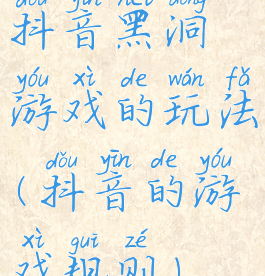 dǒu yīn hēi dòng
抖音黑洞
yóu xì de wán fǎ
游戏的玩法
dǒu yīn de yóu
(抖音的游
xì guī zé
戏规则)